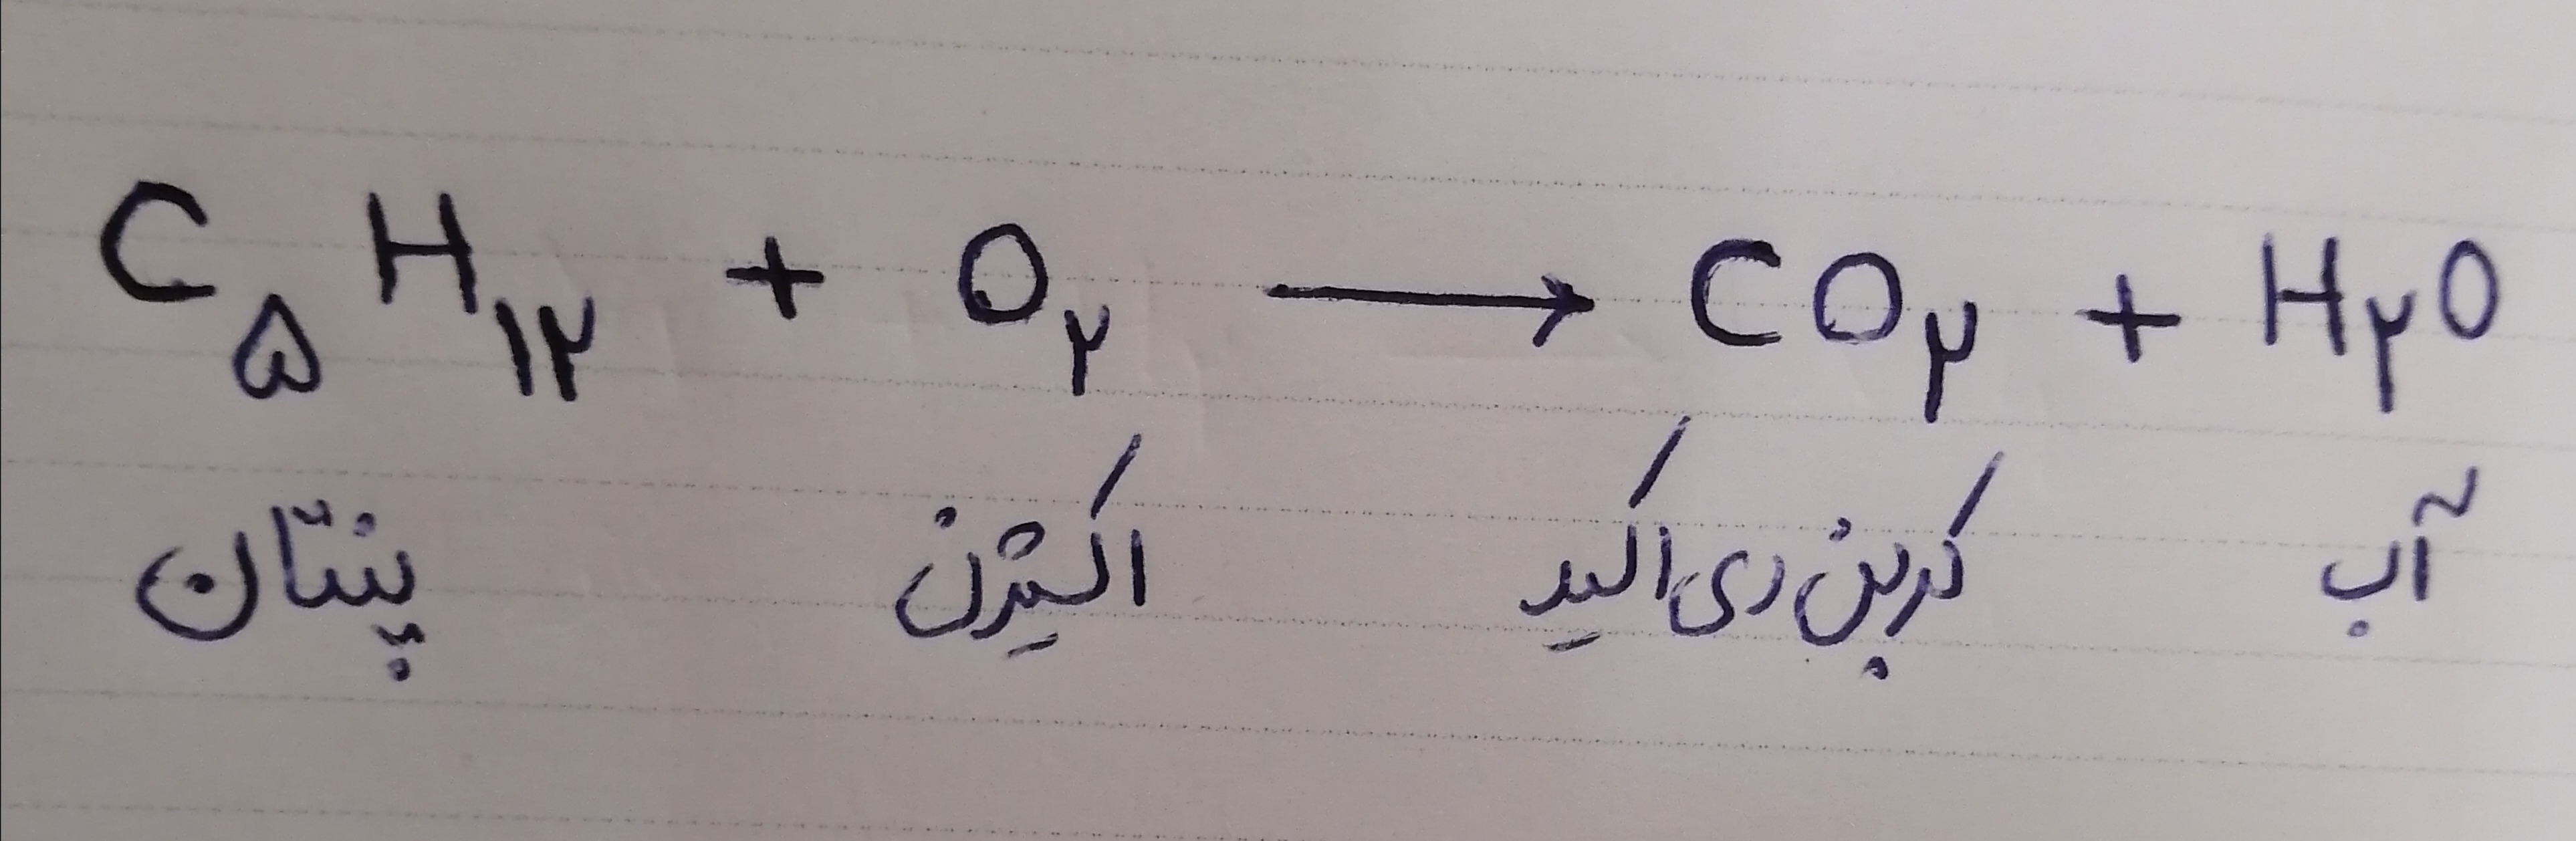 C۵H۱۲ + O۲ → CO۲ + H۲O
پنتان اکسیژن کربن دی اکسید آب